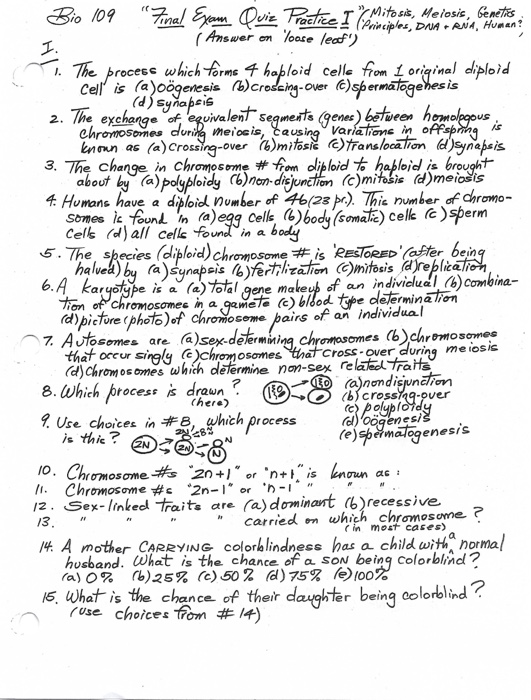 Bio 109 "Final Exam Quiz Practice I" (Mitosis, Meiosis, Genetics
(Answer on 'loose leaf') Principles, DNA + RNA, Human?
I.
1. The process which forms 4 haploid cells from 1 original diploid
cell is (a) oögenesis (b) crossing-over (c) spermatogenesis
(d) synapsis
2. The exchange of equivalent segments (genes) between homologous
chromosomes during meiosis, causing variations in offspring is
known as (a) crossing-over (b) mitosis (c) translocation (d) synapsis
3. The change in chromosome # from diploid to haploid is brought
about by (a) polyploidy (b) non-disjunction (c) mitosis (d) meiosis
4. Humans have a diploid number of 46 (23 pr.). This number of chromo-
somes is found in (a) egg cells (b) body (somatic) cells (c) sperm
cells (d) all cells found in a body
5. The species (diploid) chromosome # is 'RESTORED' (after being
halved) by (a) synapsis (b) fertilization (c) mitosis (d) replication
6. A Karyotype is a (a) total gene makeup of an individual (b) combina-
tion of chromosomes in a gamete (c) blood type determination
(d) picture (photo) of chromosome pairs of an individual
7. Autosomes are (a) sex-determining chromosomes (b) chromosomes
that occur singly (c) chromosomes that cross-over during meiosis
(d) chromosomes which determine non-sex related traits
8. Which process is drawn? (a) nondisjunction
(here) (b) crossing-over
(c) polyploidy
9. Use choices in #8, which process (d) oögenesis
is this? (e) spermatogenesis
2N 2N 2N 8N N N
10. Chromosome #s "2n+1" or "n+1" is known as :
11. Chromosome #s "2n-1" or "n-1" " " " .
12. Sex-linked traits are (a) dominant (b) recessive
13. " " " " carried on which chromosome?
(in most cases)
14. A mother CARRYING colorblindness has a child with a normal
husband. What is the chance of a SON being colorblind?
(a) 0% (b) 25% (c) 50% (d) 75% (e) 100%
15. What is the chance of their daughter being colorblind?
(use choices from #14)